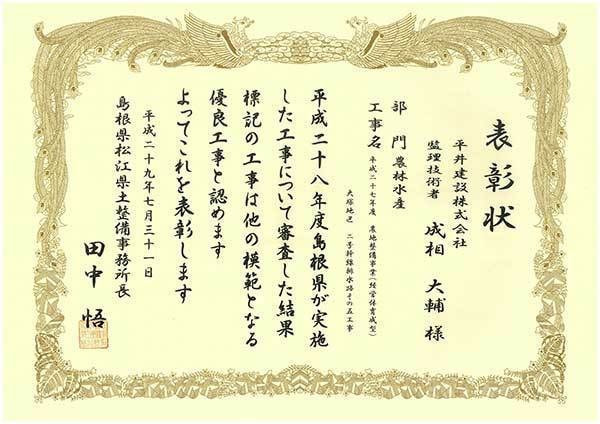 表彰状
平井建設株式会社
監理技術者 成相 大輔 様
部門 農林水産
工事名 平成二十七年度 農地整備事業(経営体育成型)
二号幹線排水路その五工事
平成二十八年度島根県が実施
した工事について審査した結果
標記の工事は他の模範となる
優良工事と認めます
よってこれを表彰します
平成二十九年七月三十一日
島根県松江県土整備事務所長
田中 悟